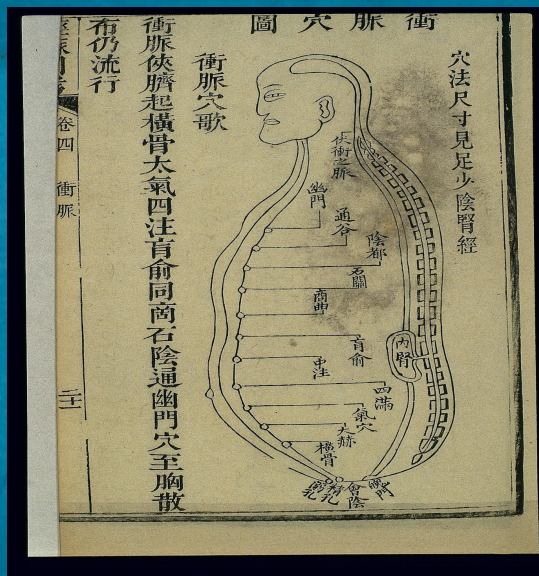 衝脈穴圖
穴法尺寸見足少陰腎經
伏衝之脈
幽門
通谷
陰都
石關
商曲
肓俞
中注
四滿
氣穴
大赫
橫骨
內腎
會陰
溺孔
精孔
衝脈穴歌
衝脈俠臍起橫骨太氣四注肓俞同商石陰通幽門穴至胸散
布仍流行
卷四
衝脈